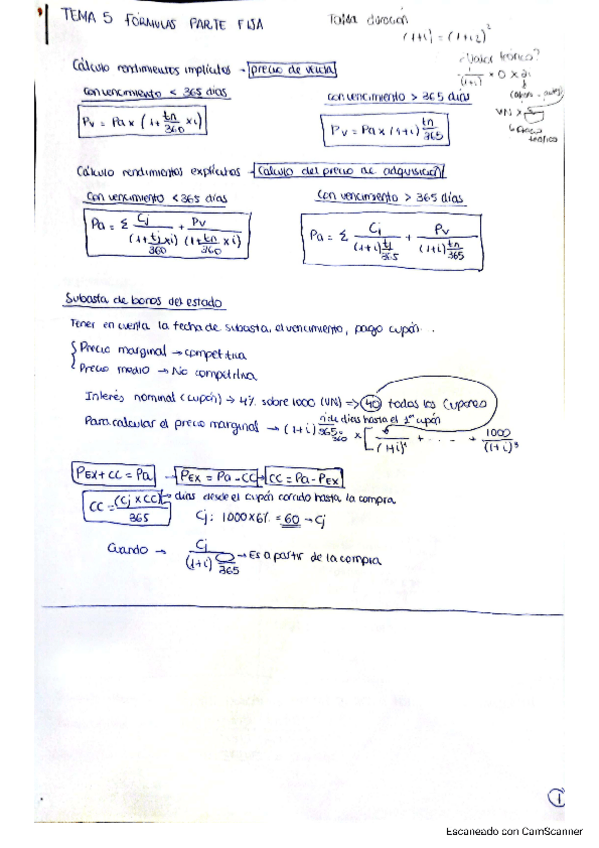 TEMA 5 FÓRMULAS PARTE FIJA
(1+i) = (1+i2)^2
¿Valor teórico?
Cálculo rendimientos implícitos → precio de venta
con vencimiento < 365 días
con vencimiento > 365 días
Pv = Pa x (1+ tn/360 x i)
Pv = Pa x (1+i)^tn/365
VN x
teórico
Cálculo rendimientos explícitos → Cálculo del precio de adquisición
con vencimiento < 365 días
con vencimiento > 365 días
Pa = Σ Cj/(1+ tj/360 x i) + Pv/(1+ tn/360 x i)
Pa = Σ Cj/(1+i)^tj/365 + Pv/(1+i)^tn/365
Subasta de bonos del estado
Tener en cuenta la fecha de subasta, el vencimiento, pago cupón.
Precio marginal → competitiva
Precio medio → No competitiva
Interés nominal (cupón) → 4% sobre 1000 (VN) => 40 todos los cupones
Para calcular el precio marginal → (1+i) nº de días hasta el 1er cupón/365-360 x [ /(1+i)^1 + .... + 1000/(1+i)^3
PEX + CC = Pa → PEX = Pa - CC → CC = Pa - PEX
CC = (Cj x CC)/365 → días desde el cupón corrido hasta la compra
Cj: 1000x6% = 60 → Cj
Cuando → Cj/(1+i)^/365 → Es a partir de la compra
1
Escaneado con CamScanner